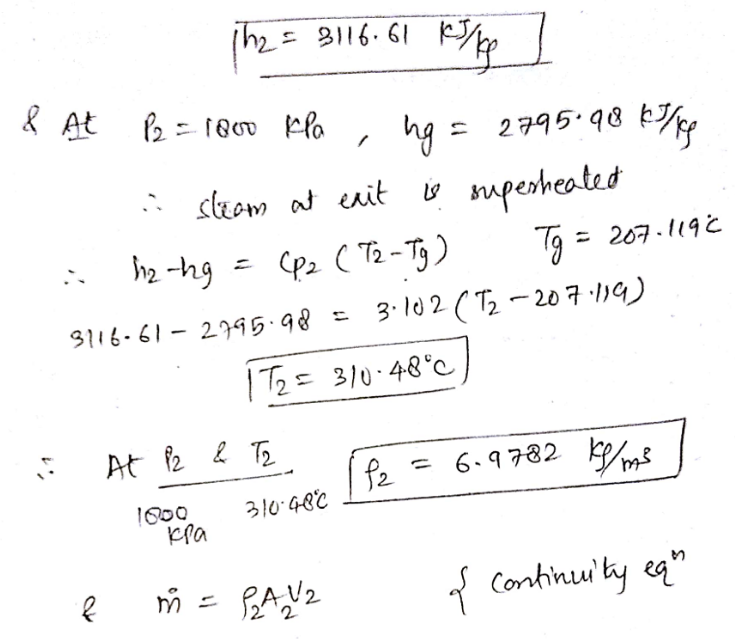 h2 = 3116.61 kJ/kg
& At P2 = 1800 kPa , hg = 2795.98 kJ/kg
∴ steam at exit is superheated
∴ h2-hg = Cp2 (T2-Tg) Tg = 207.119°C
3116.61 - 2795.98 = 3.102 (T2 - 207.119)
T2 = 310.48°C
∴ At P2 & T2 ρ2 = 6.9782 kg/m3
1800 kPa 310.48°C
& ṁ = ρ2A2V2 { continuity eqn